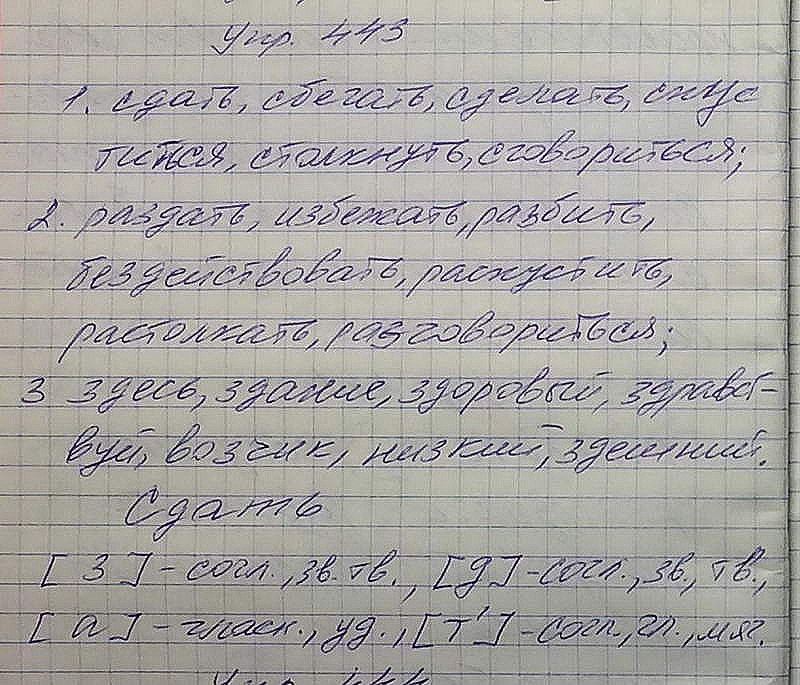 Упр. 443
1. сдать, сбегать, сделать, спус
титься, столкнуть, сговориться;
2. раздать, избежать, разбить,
бездействовать, распустить,
растолкать, разговориться;
3 здесь, здание, здоровый, здравст-
вуй, возчик, низкий, здешний.
Сдать
[З] - согл., зв. тв., [д] - согл., зв., тв.,
[а] - гласн., уд., [т'] - согл., гл., мяг.
Упр. 444